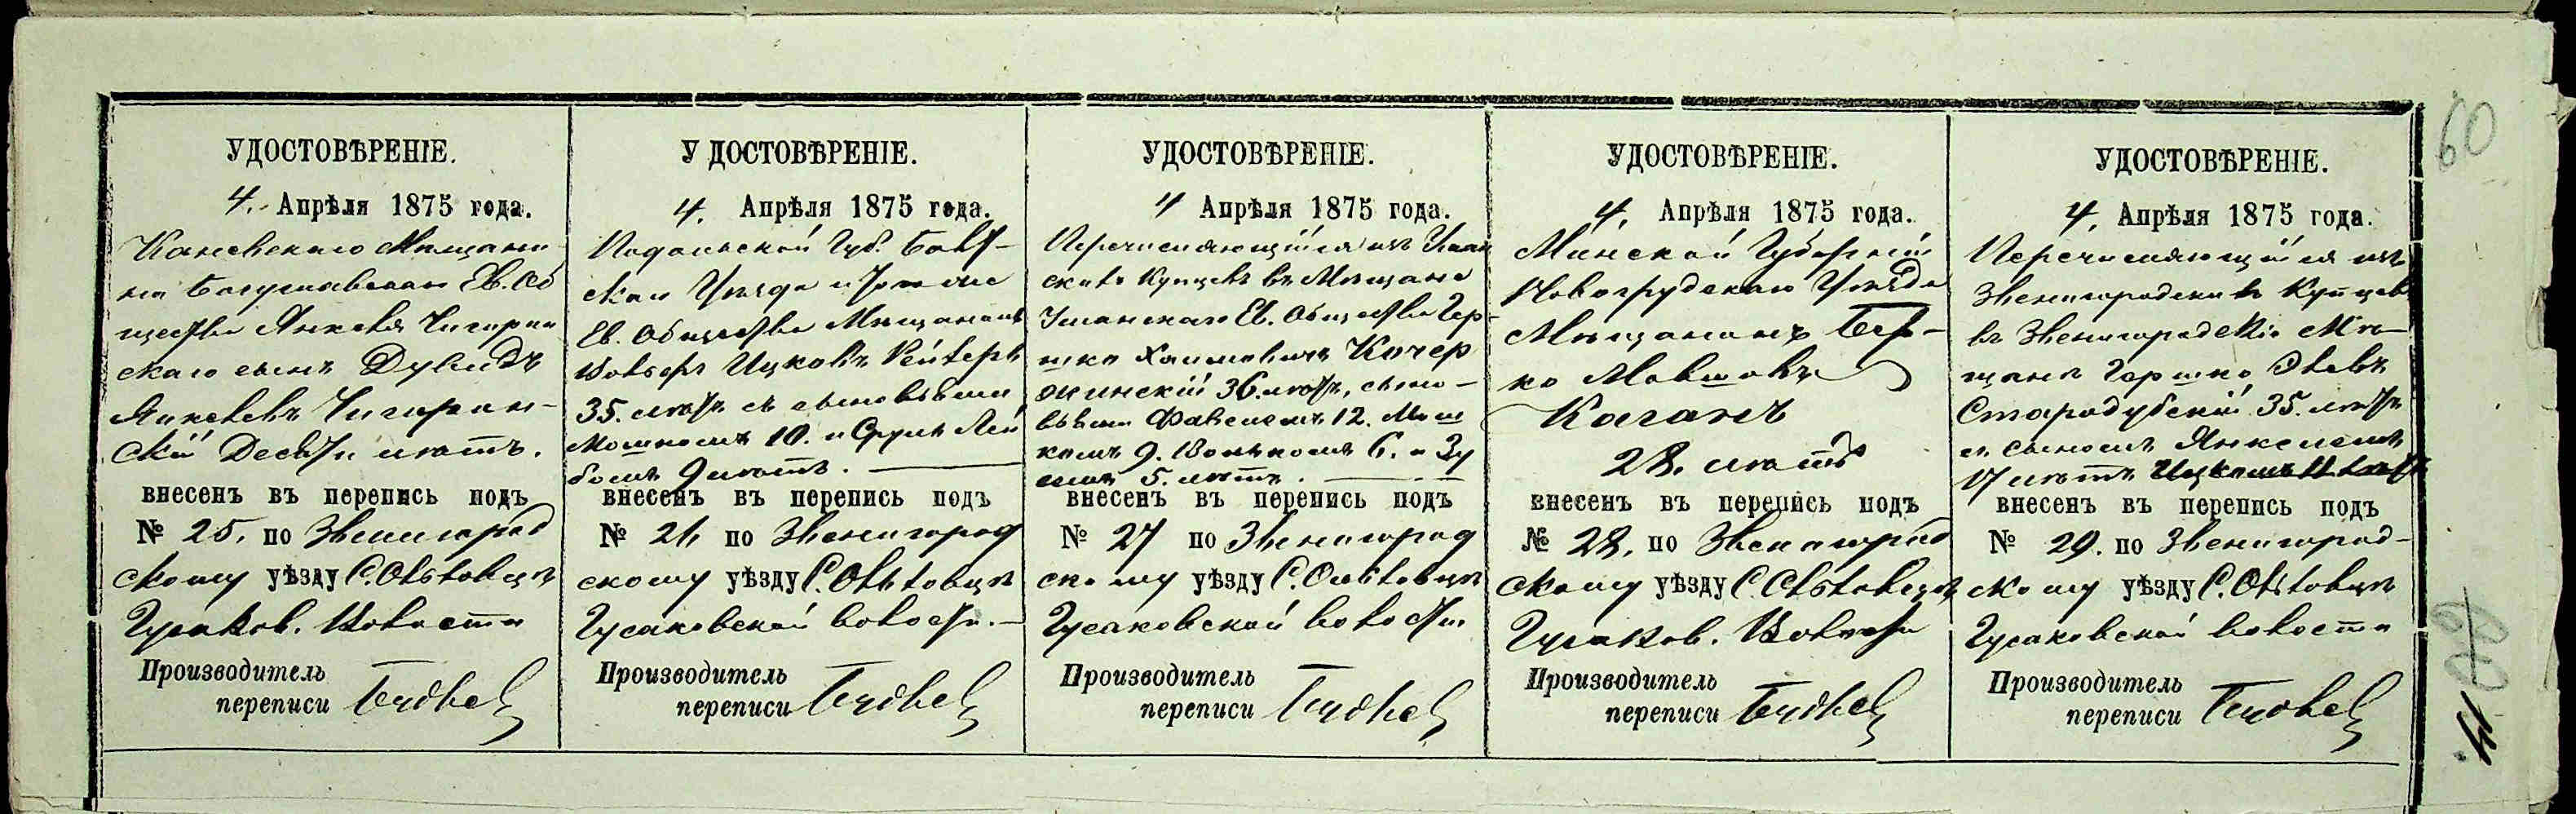 УДОСТОВѢРЕНІЕ.
4. Апрѣля 1875 года.
Каневскаго Мѣщани-
на Богуславскаго Ев. Об
щества Янкеля Чигирин
скаго сынъ Дувидъ
Янкелевъ Чигирин-
скій Десяти лѣтъ.
внесенъ въ перепись подъ
№ 25. по Звенигород
скому уѣзду С.
Гусаков. Волости
Производитель
переписи
УДОСТОВѢРЕНІЕ.
4. Апрѣля 1875 года.
Подольской Губ. Балт-
скаго Уѣзда
Ев. Общества Мѣщанинъ
Ицковъ
35. лѣтъ съ сыновьями
Мошкомъ 10. и Срулъ Лей
бомъ 9 лѣтъ.
внесенъ въ перепись подъ
№ по Звенигород
скому уѣзду С.
Гусаковской волости.
Производитель
переписи
УДОСТОВѢРЕНІЕ.
4 Апрѣля 1875 года.
Перечисляющійся изъ Уман
скихъ Купцовъ въ Мѣщане
Уманскаго Ев. Общества Гер-
шко Хаимовичъ Кичер
жинскій 36 лѣтъ, сыно-
вьями 12. Мош
комъ 9. Волькомъ 6. и Зу
5. лѣтъ.
внесенъ въ перепись подъ
№ 27 по Звенигород
скому уѣзду С.
Гусаковской волости
Производитель
переписи
УДОСТОВѢРЕНІЕ.
4. Апрѣля 1875 года.
Минской Губерніи
Новогрудскаго Уѣзда
Мѣщанинъ Бер-
ко Мовшовъ
Каганъ
28. лѣтъ
внесенъ въ перепись подъ
№ 28. по Звенигород
скому уѣзду С.
Гусаков. Волости
Производитель
переписи
УДОСТОВѢРЕНІЕ.
4. Апрѣля 1875 года.
Перечисляющійся изъ
Звенигородскихъ Купцовъ
въ Звенигородскіе Мѣ-
щане Гершко
Стародубскій 35. лѣтъ
съ сыномъ Янкелемъ
17 лѣтъ Ицкомъ 11 лѣтъ
внесенъ въ перепись подъ
№ 29. по Звенигород-
скому уѣзду С.
Гусаковской волости
Производитель
переписи
60